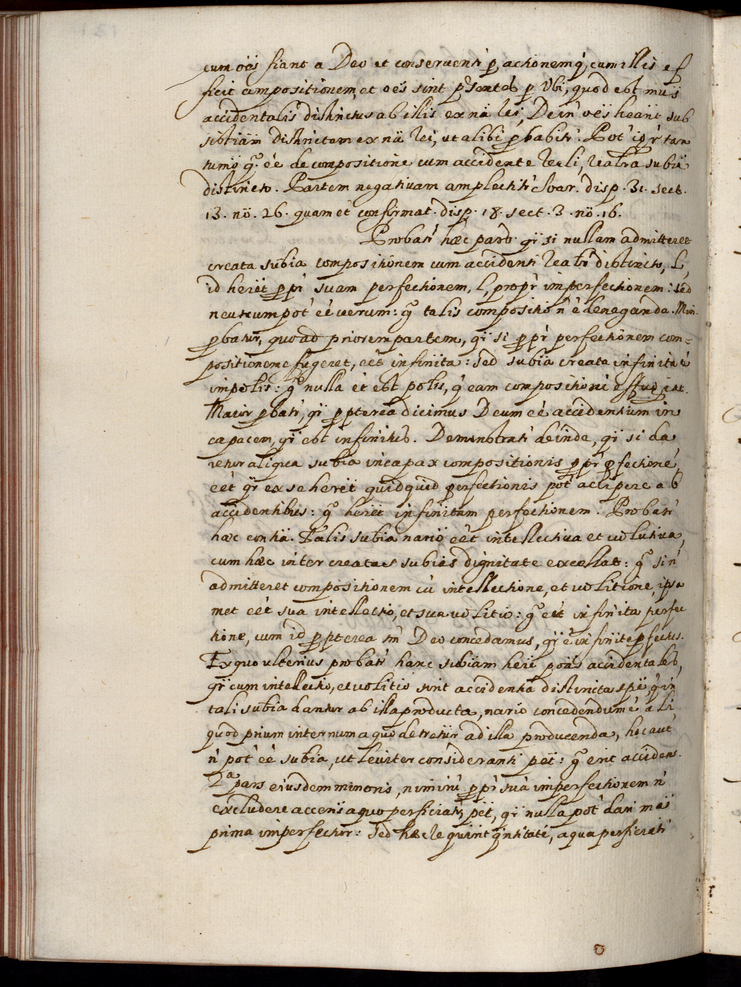 cum oēs fiant a Deo et conserventʳ p actionem q̨ cum illis ef
ficit compositionem, et oēs sint pʳsentes p Vbi, quod est mūs
accidentalis distinctus ab illis ex nā rei, Dein oēs heant sub
sistiām distinctam ex nā rei, ut alibi pbabitʳ. Pot' igʳ tan
tum q̄ri de compositione cum accidente reali realr̄ a subiā
distincto. Partem negativam amplectitʳ Soar. disp. 31. sect.
13. nō. 26. quam et confirmat disp. 18. sect. 3. nō. 16.
Probatʳ hæc pars qⁱ si nulla admitteret
creata subia compositionem cum accidenti realr̄ distincto, l,
id heret ppʳ suam perfectionem, l, propʳ imperfectionem: sed
neutrum pot' ēē verum: gͦ talis compositio n̄ ē deneganda. Min.
pbatur, quoad priorem partem, qⁱ si ppʳ perfectionem com=
positionem fugeret, eēt infinita: sed subia creata infinita ē
impolis: gͦ nulla et est polis, q̨ eam compositionē effugiat.
Maior pbatʳ, qⁱ ppterea dicimus Deum eē accidentium in
capacem, qⁱ est infinitus. Demonstratʳ deinde, qⁱ si da
retur aliqua subia incapax compositionis ppʳ pfectionē
eēt qⁱ ex se heret quidquid perfectionis pot' accipere ab
accidentibus: gͦ heret infinitam perfectionem. Probatʳ
hæc conᵃ. Talis subia nario eēt intellectiva et volitiva,
cum hæc inter creatas subias dignitate excellat: gͦ si n̄
admitteret compositionem cū intellectione, et volitione, ipsa
met eēt sua intellectio, et sua volitio: gͦ eēt infinita perfe
ctione, cum id ppterea tm̄ Deo concedamus, qⁱ ē infinite pfectus.
Ex quo ulterius probatʳ hanc subiam here pōns accidentales,
qⁱ cum intellectio, et volitio sint accidentia distincta spē, q̨ in
tali subia dantur ab illa producta, nario concedendum ē ali
quod prium internum a quo detretur ad illa producenda, hoc aut
n̄ pot' ēē subia, ut leviter consideranti pet: gͦ erit accidens.
2ᵃ pars eiusdem minoris, nimirū ppʳ suā imperfectionem n̄
excludere accens a quo perficiatʳ, pet, qⁱ nulla pot' dari mā
prima imperfectior: sed hæc requirit qntitatē, a qua perficiatʳ